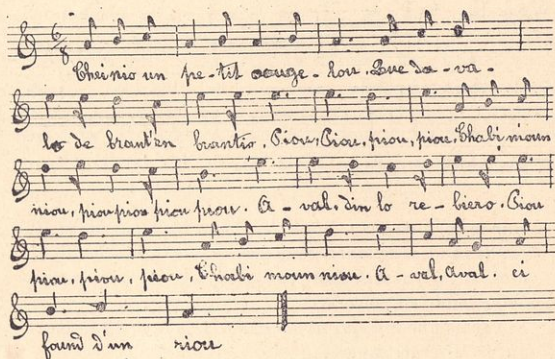 6/8
Chei nio un pe-tit auuge-lou. Que da-va-
lo de brant'en brantio. Piou, Piou, piou, piou, Chabi moun
niou, piou piou piou piou. A-val, din lo re-biero. Piou
piou, piou, piou, Chabi moun niou. A-val, aval. ei
found d'un riou